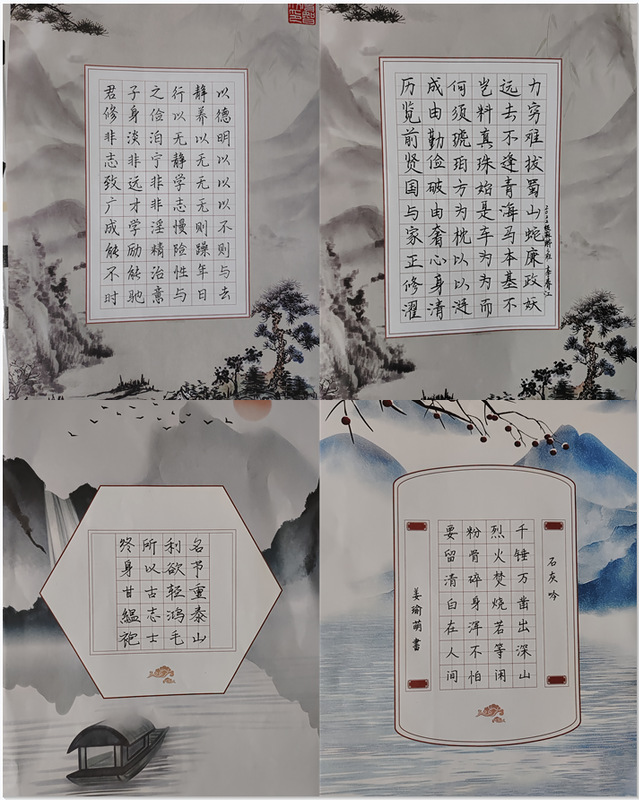 君子之行静以
修身俭以养德
非淡泊无以明
志非宁静无以
致远非学无以
广才非志无以
成学淫慢则不
能励精险躁则
不能治性年与
时驰意与去
历览前贤国与家
成由勤俭破由奢
何须琥珀方为枕
岂料真珠始是车
远去不逢青海马
力穷难拔蜀山蛇
正心以为本廉
修身以为基政
濯清涟而不妖
班 李春江
名节重泰山
利欲轻鸿毛
所以古志士
终身甘缊袍
石灰吟
千锤万凿出深山
烈火焚烧若等闲
粉骨碎身浑不怕
要留清白在人间
姜瑜萌书